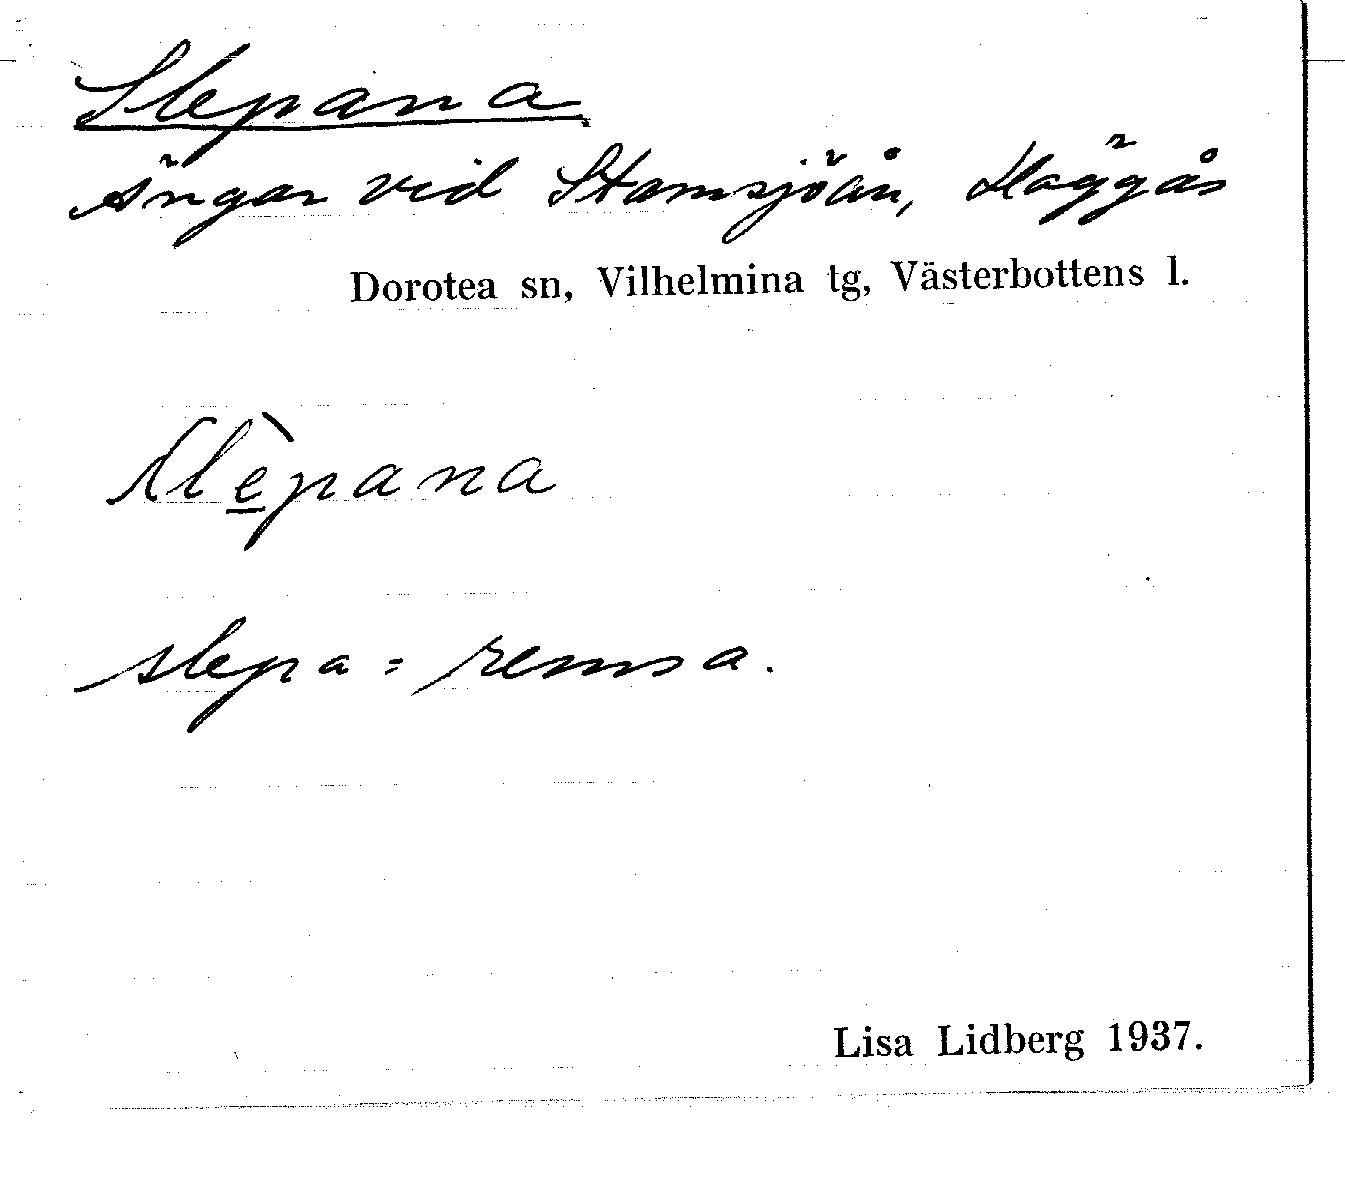 Slepana
Ängar vid Stamsjöån, Häggås
Dorotea sn, Vilhelmina tg, Västerbottens l.
slèpana
slepa = remsa.
Lisa Lidberg 1937.